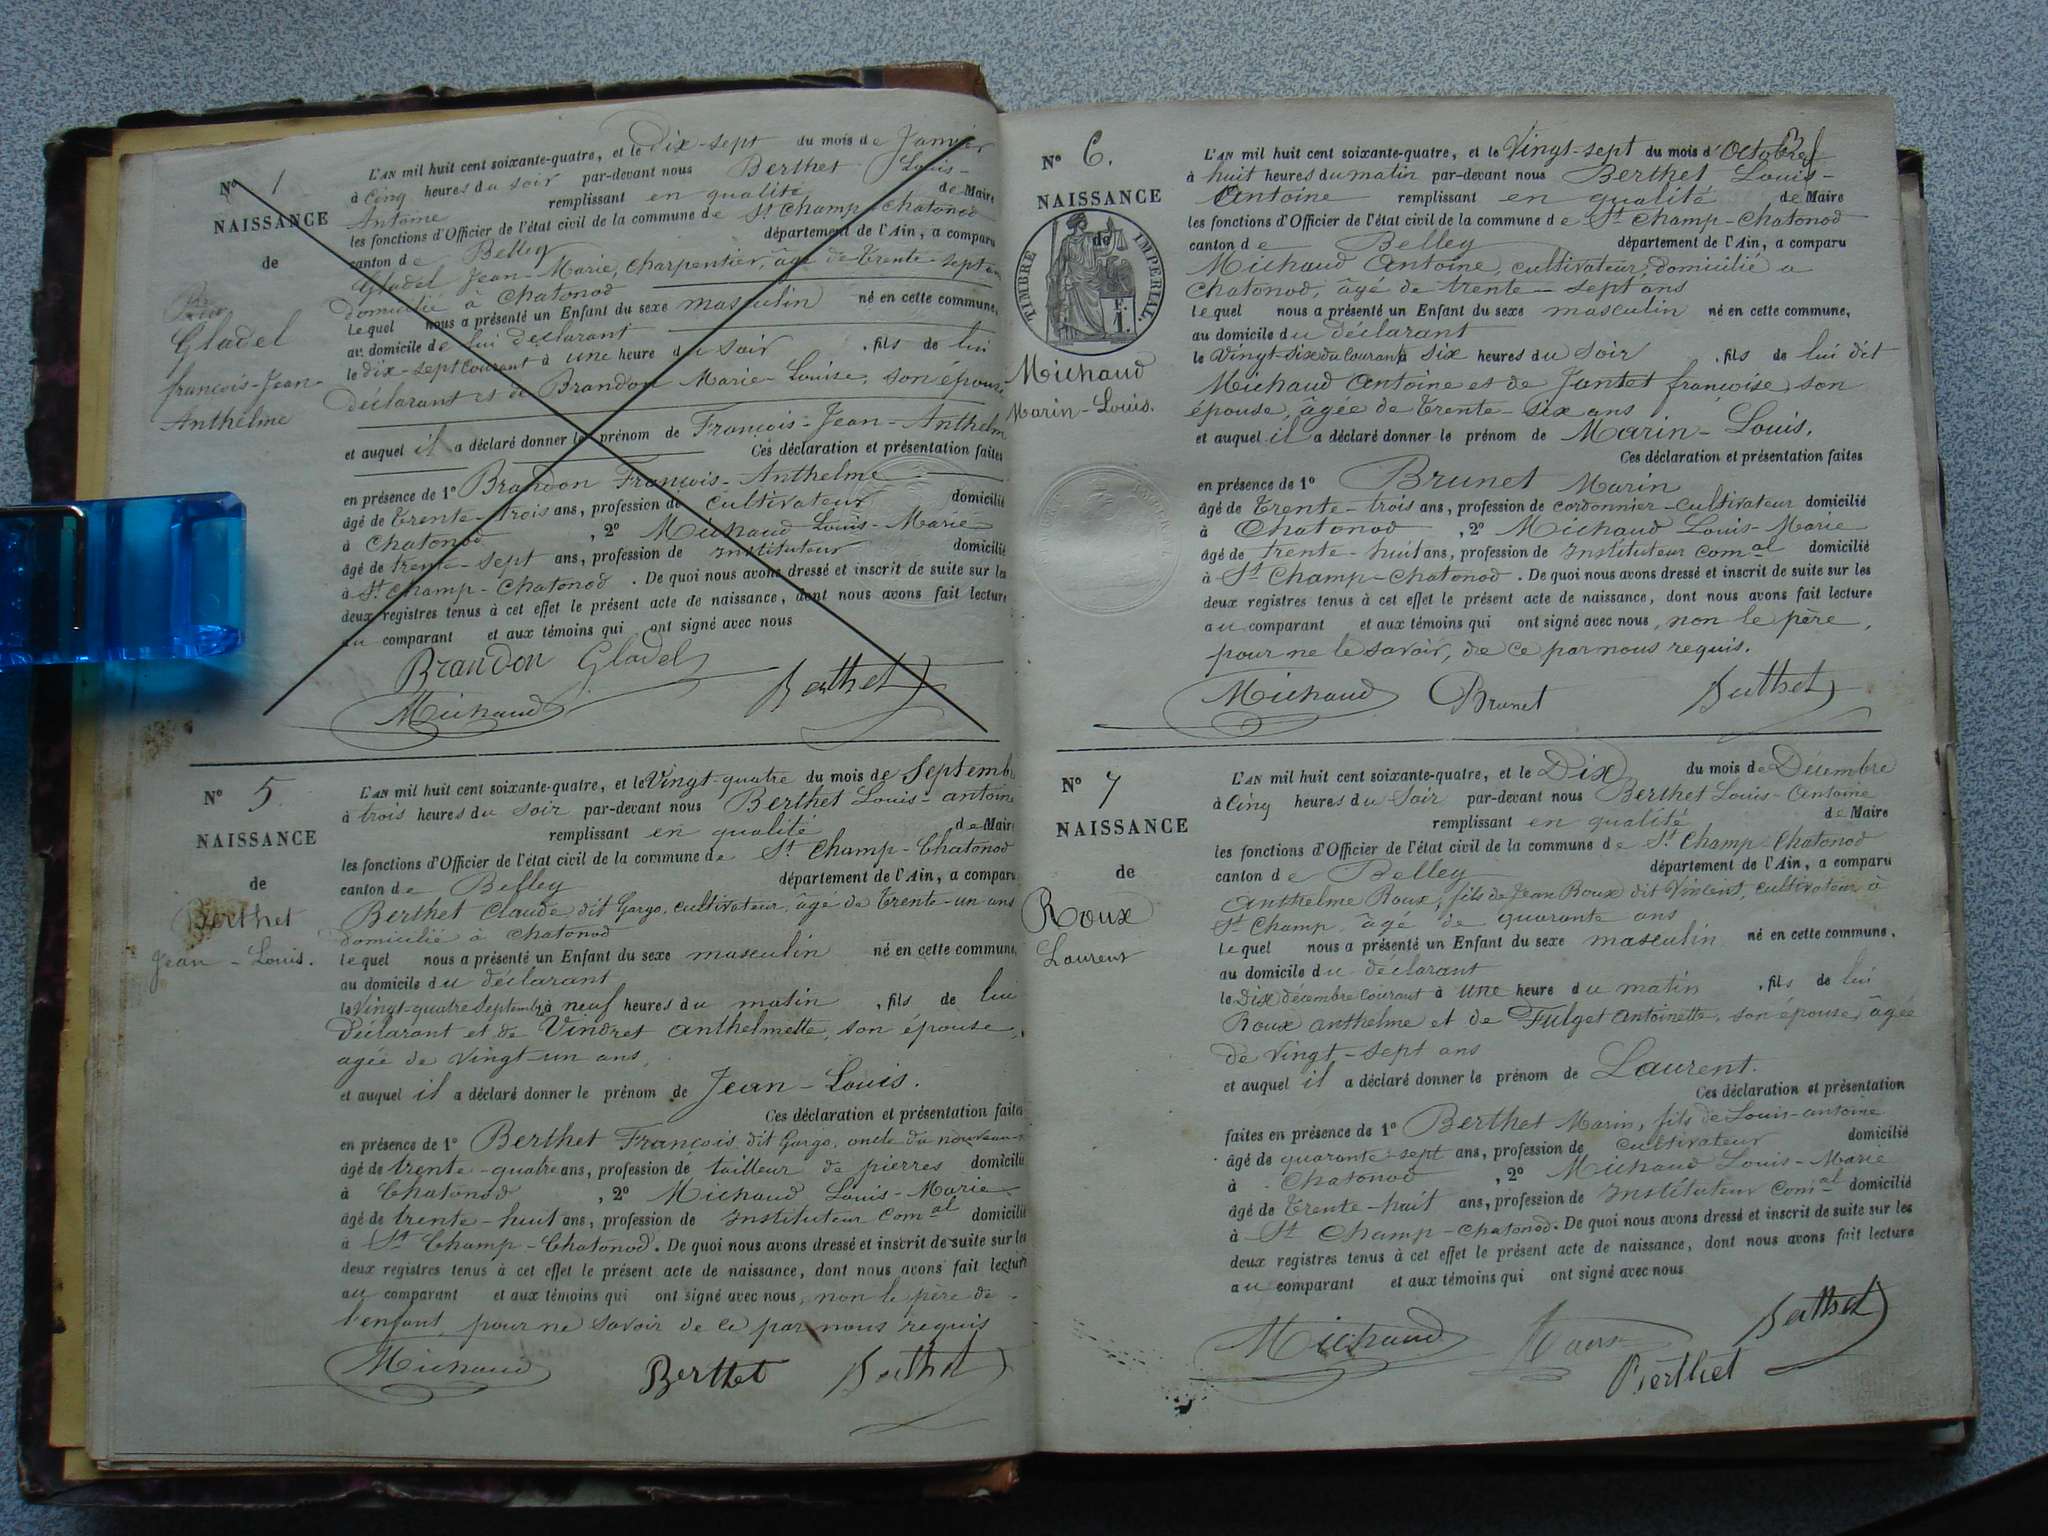 N° 1
NAISSANCE
de
Gladel
françois-Jean-
Anthelme
L'AN mil huit cent soixante-quatre, et le Dix-sept du mois de Janvier
à Cinq heures du soir par-devant nous Berthet Louis-
Antoine remplissant en qualité de Maire
les fonctions d'Officier de l'état civil de la commune de St Champ-Chatonod
canton de Belley département de l'Ain, a comparu
Gladel Jean-Marie, Charpentier, âgé de Trente-sept ans
domicilié à Chatonod
Lequel nous a présenté un Enfant du sexe masculin né en cette commune,
au domicile de lui Déclarant
le dix-sept courant à une heure du soir , fils de lui
declarant et de Brandon Marie-Louise, son épouse
et auquel il a déclaré donner le prénom de François-Jean-Anthelm
Ces déclaration et présentation faites
en présence de 1° Brandon François-Anthelme
âgé de Trente-trois ans, profession de Cultivateur domicilié
à Chatonod , 2° Michaud Louis-Marie
âgé de trente-sept ans, profession de Instituteur domicilié
à St Champ-Chatonod . De quoi nous avons dressé et inscrit de suite sur les
deux registres tenus à cet effet le présent acte de naissance, dont nous avons fait lecture
au comparant et aux témoins qui ont signé avec nous
Brandon Gladel
Michaud Berthet
N° 5
NAISSANCE
de
Berthet
Jean-Louis.
L'AN mil huit cent soixante-quatre, et le Vingt-quatre du mois de Septemb
à trois heures du soir par-devant nous Berthet Louis-antoine
remplissant en qualité de Maire
les fonctions d'Officier de l'état civil de la commune de St Champ-Chatonod
canton de Belley département de l'Ain, a comparu
Berthet Claude, dit Gargo, cultivateur, âgé de Trente-un ans
domicilié à Chatonod
Lequel nous a présenté un Enfant du sexe masculin né en cette commune,
au domicile du déclarant
le Vingt-quatre Septembre à neuf heures du matin , fils de lui
Déclarant et de Vindret anthelmette, son épouse,
agée de vingt-un ans,
et auquel il a déclaré donner le prénom de Jean-Louis.
Ces déclaration et présentation faites
en présence de 1° Berthet François, dit Gargo, oncle du nouveau-
âgé de trente-quatre ans, profession de tailleur de pierres domicilié
à Chatonod , 2° Michaud Louis-Marie
âgé de trente-huit ans, profession de Instituteur Comal domicilié
à St Champ-Chatonod. De quoi nous avons dressé et inscrit de suite sur les
deux registres tenus à cet effet le présent acte de naissance, dont nous avons fait lecture
au comparant et aux témoins qui ont signé avec nous, non le père de
l'enfant, pour ne savoir de ce par nous requis
Michaud Berthet Berthet
N° 6.
NAISSANCE
de
TIMBRE IMPERIAL.
F.
1.
Michaud
Marin-Louis.
L'AN mil huit cent soixante-quatre, et le Vingt-sept du mois d'Octobre
à huit heures du matin par-devant nous Berthet Louis-
Antoine remplissant en qualité de Maire
les fonctions d'Officier de l'état civil de la commune de St Champ-Chatonod
canton de Belley département de l'Ain, a comparu
Michaud Antoine, cultivateur, domicilié a
Chatonod, âgé de trente-sept ans
Lequel nous a présenté un Enfant du sexe masculin né en cette commune,
au domicile du déclarant
le Vingt-six du Courant à six heures du soir , fils de lui dit
Michaud Antoine et de Jantet françoise, son
épouse, âgée de Trente-six ans
et auquel il a déclaré donner le prénom de Marin-Louis.
Ces déclaration et présentation faites
en présence de 1° Brunet Marin
âgé de Trente-trois ans, profession de cordonnier-cultivateur domicilié
à Chatonod , 2° Michaud Louis-Marie
âgé de trente-huit ans, profession de Instituteur Comal domicilié
à St Champ-Chatonod . De quoi nous avons dressé et inscrit de suite sur les
deux registres tenus à cet effet le présent acte de naissance, dont nous avons fait lecture
au comparant et aux témoins qui ont signé avec nous, non le père,
pour ne le savoir, de ce par nous requis.
Michaud Brunet Berthet
N° 7
NAISSANCE
de
Roux
Laurent
L'AN mil huit cent soixante-quatre, et le Dix du mois de Décembre
à Cinq heures du Soir par-devant nous Berthet Louis-Antoine
remplissant en qualité de Maire
les fonctions d'Officier de l'état civil de la commune de St Champ-Chatonod
canton de Belley département de l'Ain, a comparu
Anthelme Roux, fils de Jean Roux dit Vincent, cultivateur à
St Champ âgé de quarante ans
Lequel nous a présenté un Enfant du sexe masculin né en cette commune,
au domicile du déclarant
le Dix décembre courant à une heure du matin , fils de lui
Roux anthelme et de Fulget Antoinette, son épouse, âgée
de vingt-sept ans
et auquel il a déclaré donner le prénom de Laurent.
Ces déclaration et présentation
faites en présence de 1° Berthet Marin, fils de Louis-antoine
âgé de quarante-sept ans, profession de cultivateur domicilié
à Chatonod , 2° Michaud Louis-Marie
âgé de Trente-huit ans, profession de Instituteur Comal domicilié
à St Champ-Chatonod. De quoi nous avons dressé et inscrit de suite sur les
deux registres tenus à cet effet le présent acte de naissance, dont nous avons fait lecture
au comparant et aux témoins qui ont signé avec nous
Michaud Berthet
Berthet